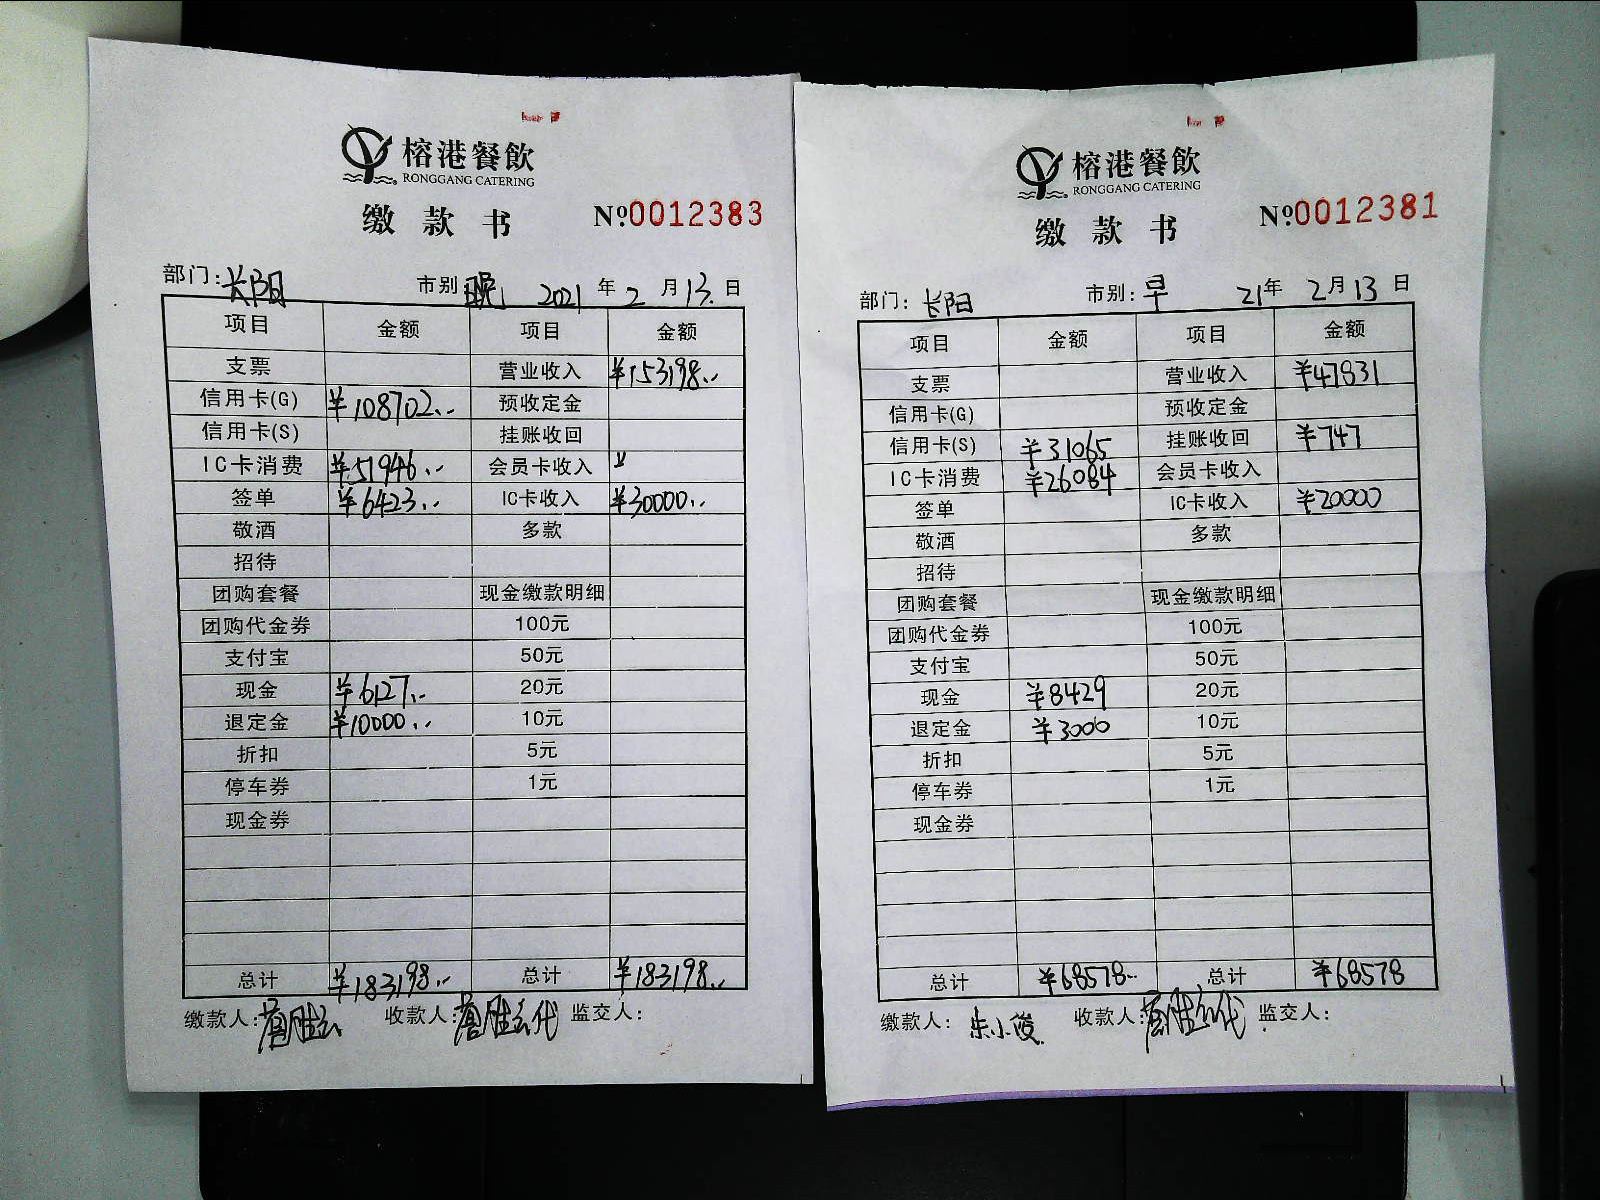 榕港餐飲
RONGGANG CATERING
缴款书 №0012383
部门:长阳 市别:晚 2021年2月13日
项目 金额 项目 金额
支票 营业收入 ¥153198..
信用卡(G) ¥108702.. 预收定金
信用卡(S) 挂账收回
IC卡消费 ¥51946.. 会员卡收入
签单 ¥6423.. IC卡收入 ¥30000..
敬酒 多款
招待
团购套餐 现金缴款明细
团购代金券 100元
支付宝 50元
现金 ¥6127.. 20元
退定金 ¥10000.. 10元
折扣 5元
停车券 1元
现金券
总计 ¥183198.. 总计 ¥183198..
缴款人: 收款人: 监交人:
榕港餐飲
RONGGANG CATERING
缴款书 №0012381
部门:长阳 市别:早 21年2月13日
项目 金额 项目 金额
支票 营业收入 ¥47831
信用卡(G) 预收定金
信用卡(S) ¥31065 挂账收回 ¥747
IC卡消费 ¥26084 会员卡收入
签单 IC卡收入 ¥20000
敬酒 多款
招待
团购套餐 现金缴款明细
团购代金券 100元
支付宝 50元
现金 ¥8429 20元
退定金 ¥3000 10元
折扣 5元
停车券 1元
现金券
总计 ¥68578.. 总计 ¥68578
缴款人:朱小俊 收款人: 监交人: